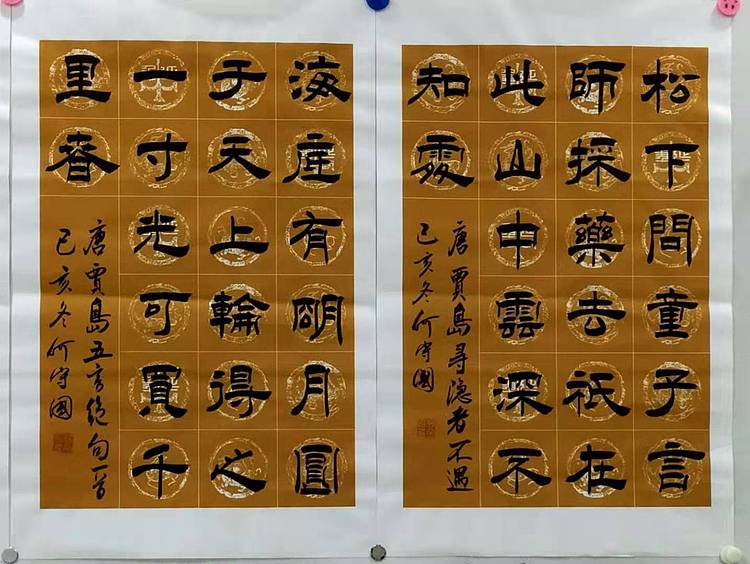 松下問童子言
師採藥去祇在
此山中雲深不
知處
唐賈島尋隐者不遇
己亥冬何守國
海底有朙月圓
于天上輪得之
一寸光可買千
里春
唐賈島五言绝句一首
己亥冬何守國